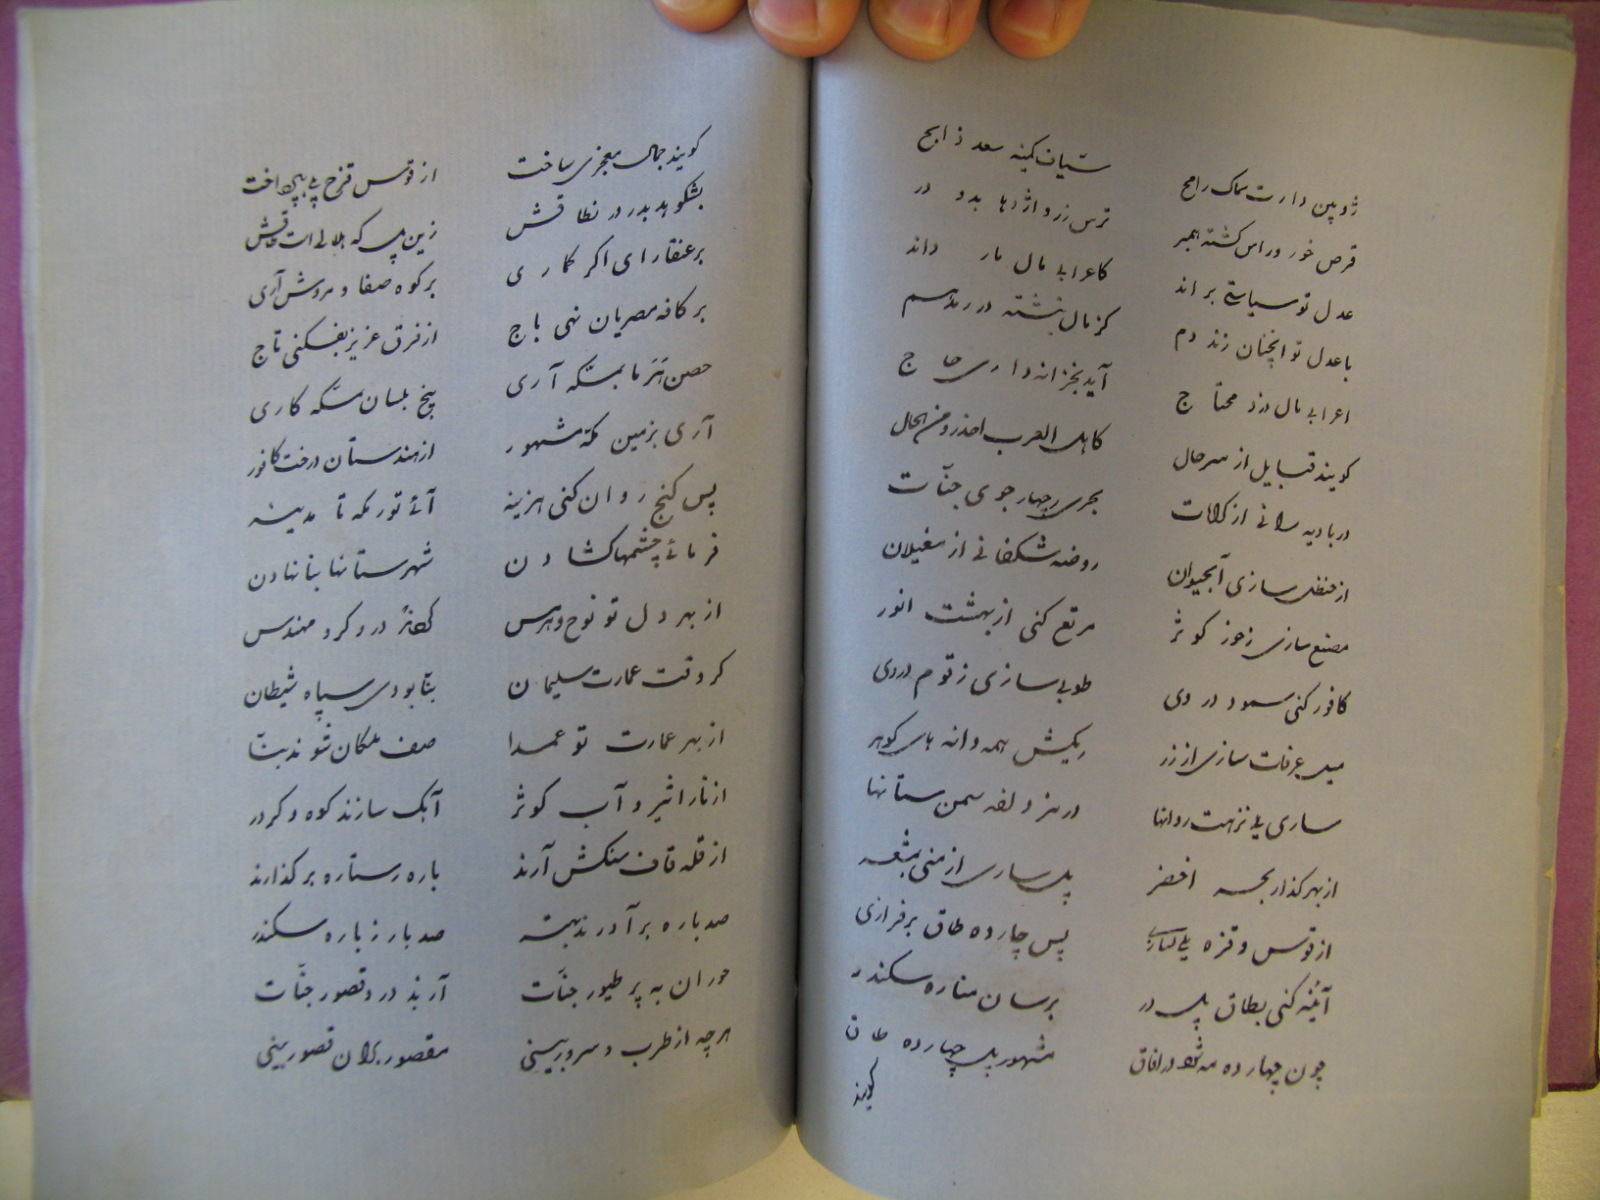 ژوپین دارت سماک رامح
سیاف کمینه سعد ذابح
قرص خور و راس کشته همبر
ترس زر و اژدها بدو در
عدل تو سیاستی براند
کاعرابی مال مار داند
با عدل تو آنچنان زند دم
کز مال نبشته در رمد سم
اعرابی مال دزد محتاج
آید بخزانه داری حاج
گویند قبایل از سر حال
کاهل العرب احذروا من الحال
در بادیه رانی از کرامات
بحری ز چهار جوی جنّات
از حنظل سازی آبحیوان
روضه شکفانی از مغیلان
مصنع سازی ز حوز کوثر
مرتع کنی از بهشت انور
کافور کنی سموم در دی
طوبی سازی زقوم در وی
میل عرفات سازی از زر
ریگش همه دانه های گوهر
سازی پی نزهت روانها
در سمن ستانها
از بهر گذار بحر اخضر
پل سازی از منی بمشعر
از قوس و قزه پلی
پس چارده طاق برفرازی
آئینه کنی بطاق پل در
برسان مناره سکندر
چون چهارده مه شود در افاق
مشهور پل چهارده طاق
گویند
گویند جمال معجزی ساخت
از قوس قزح پلی بپرداخت
بشکوهد بدر در نطاقش
زین پل که هلالی است طاقش
بر عنقا رای اگر گماری
بر کوه صفا و مروش آری
بر کافه مصریان نهی باج
از فرق عزیز بفکنی تاج
حصن هرما بمکّه آری
بیخ بلسان بمکّه کاری
آری بزمین مکّه مشهور
از هندستان درخت کافور
پس گنج روان کنی هزینه
آئی تو ز مکه تا مدینه
فرمائی چشمها گشادن
شهرستانها بنا نهادن
از بهر دل تو نوح و هرمس
در و گر و مهندس
گر وقت عمارت سلیمان
بنّا بودی سپاه شیطان
از بهر عمارت تو عمدا
صف ملکان شوند بنّا
از نار اثیر و آب کوثر
آهک سازند کوه و کردر
از قله قاف سنگش آرند
باره ز ستاره برگذارند
صد باره برآورند بسته
صد بار ز باره سکندر
حوران به پر طیور جنّات
آرند در و قصور جنّات
هرچه از طرب و سرور بینی
مقصور بران قصور بینی